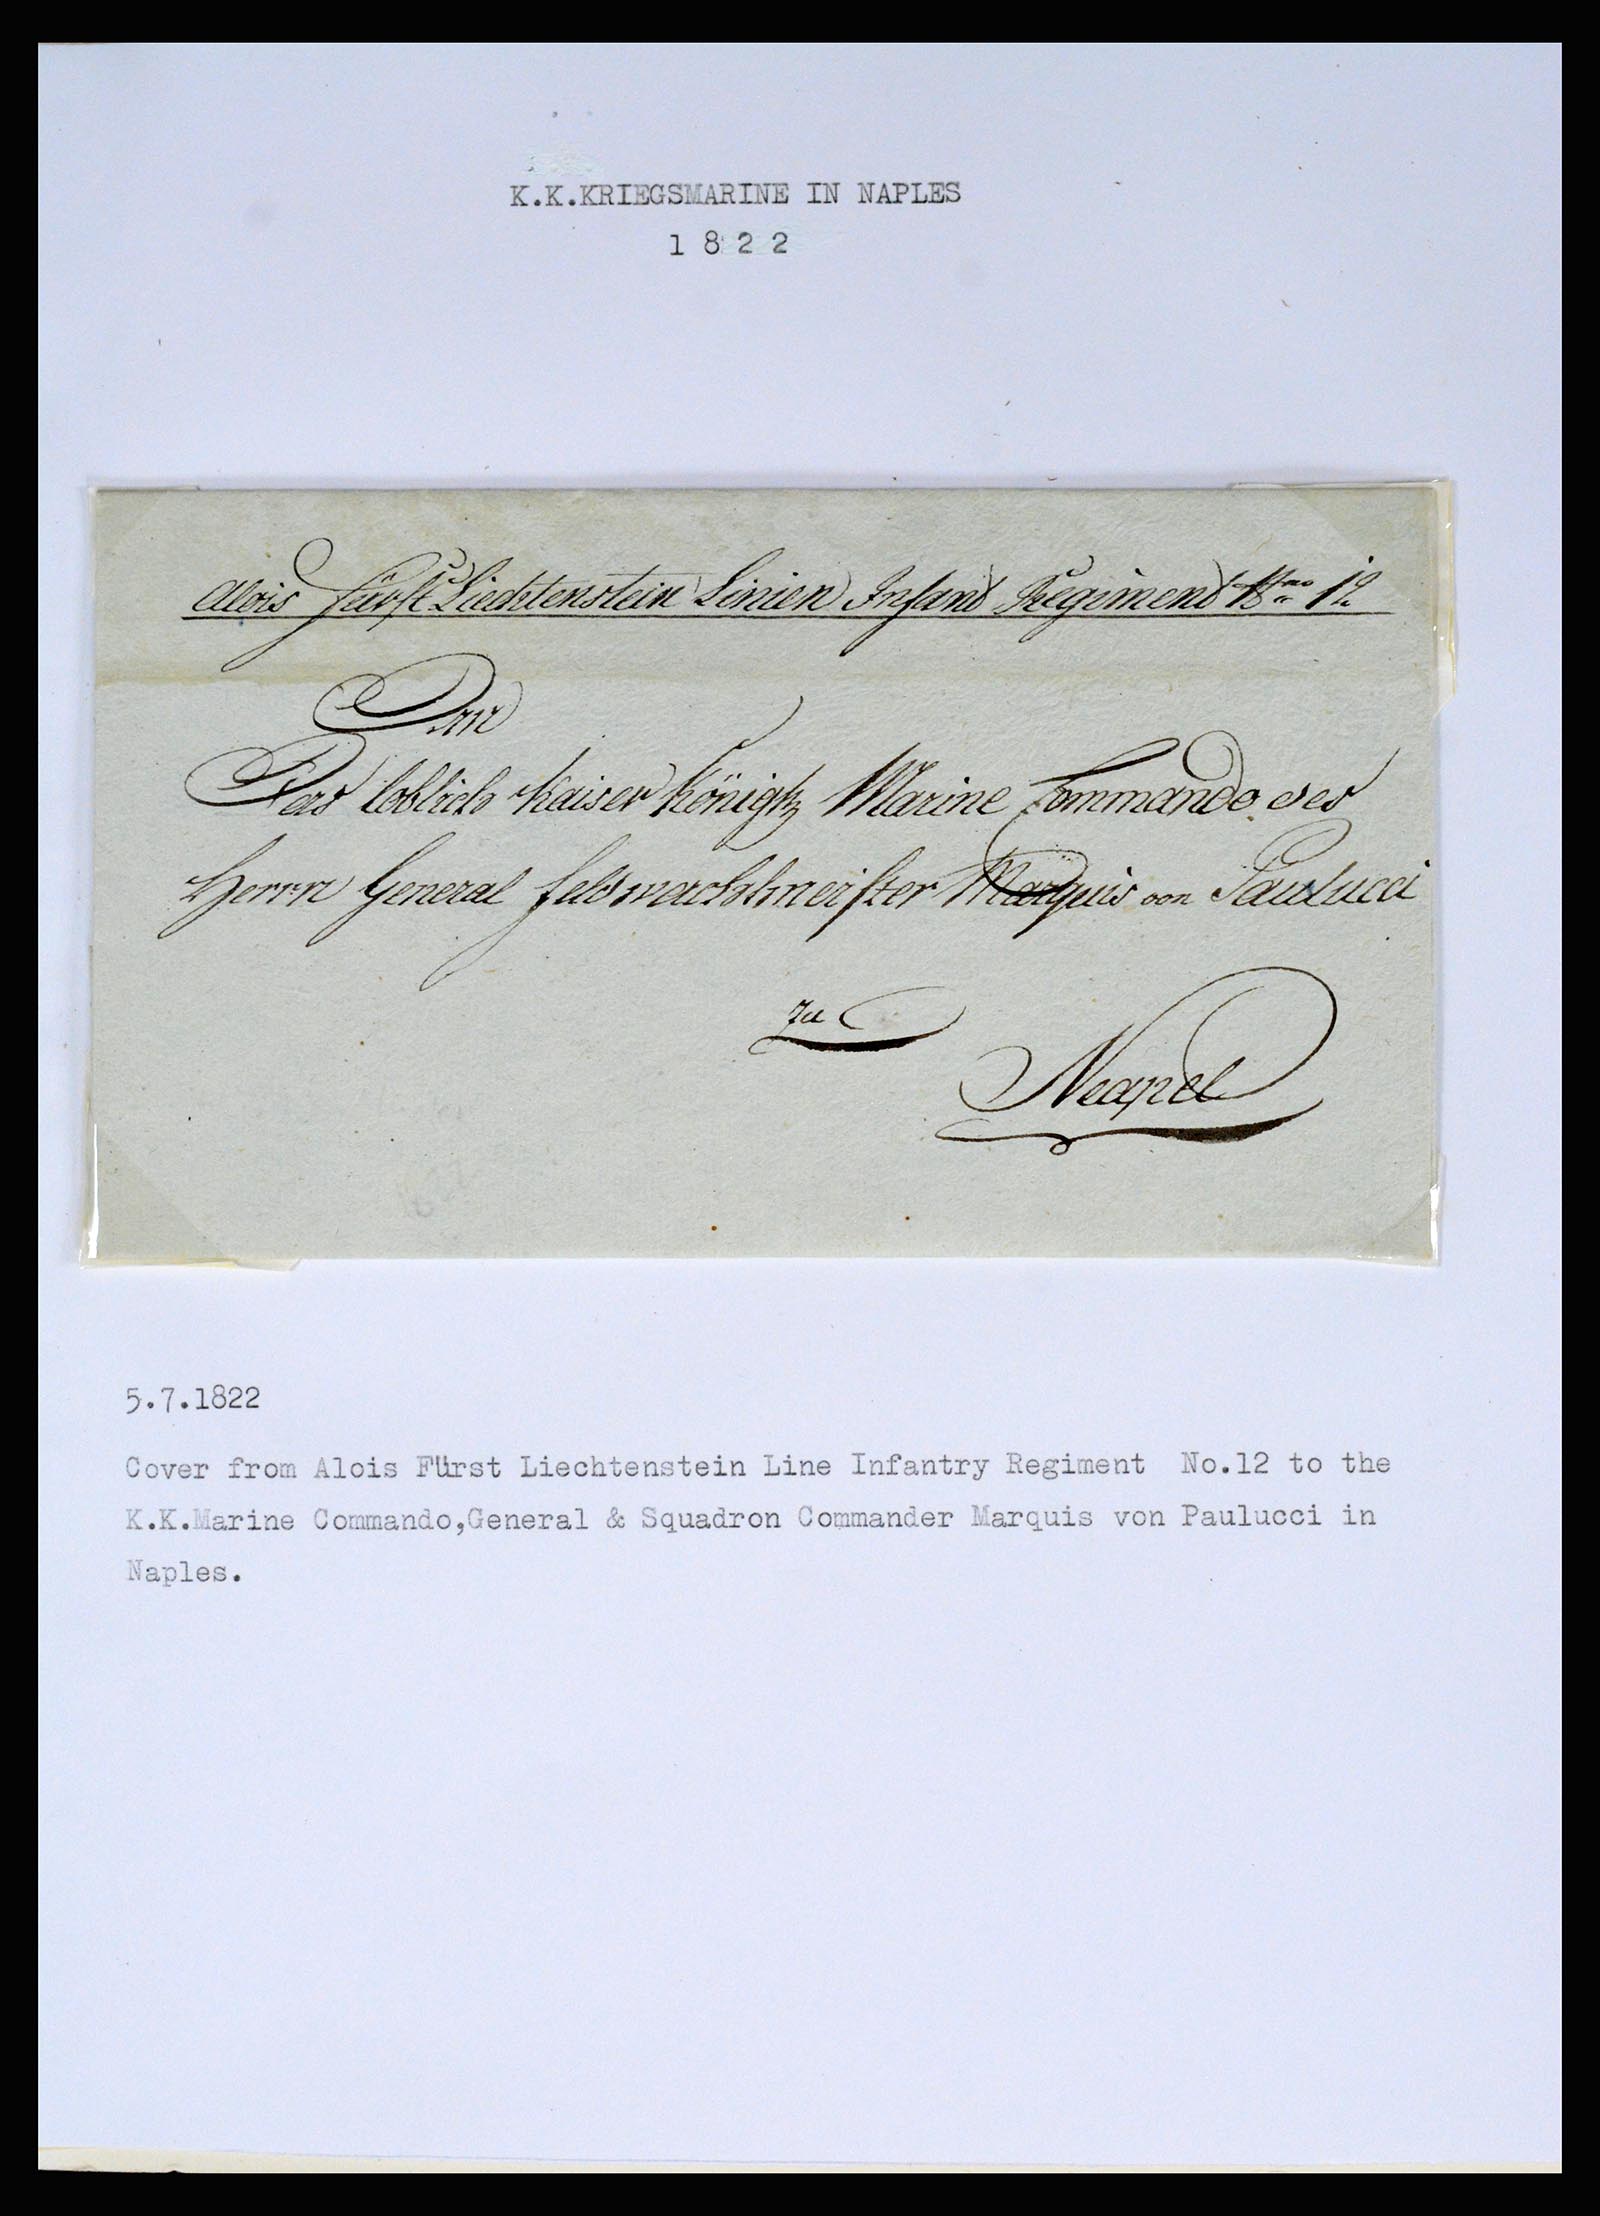 K.K.KRIEGSMARINE IN NAPLES
1 8 2 2
Alois Fürst Liechtenstein Linien Infand Regimend Nro 12
An
Das loblich Kaiser Königlz Marine Commando des
Herrn General Feldwachtmeister Marquis von Paulucci
zu
Neapel
5.7.1822
Cover from Alois Fürst Liechtenstein Line Infantry Regiment No.12 to the
K.K.Marine Commando,General & Squadron Commander Marquis von Paulucci in
Naples.